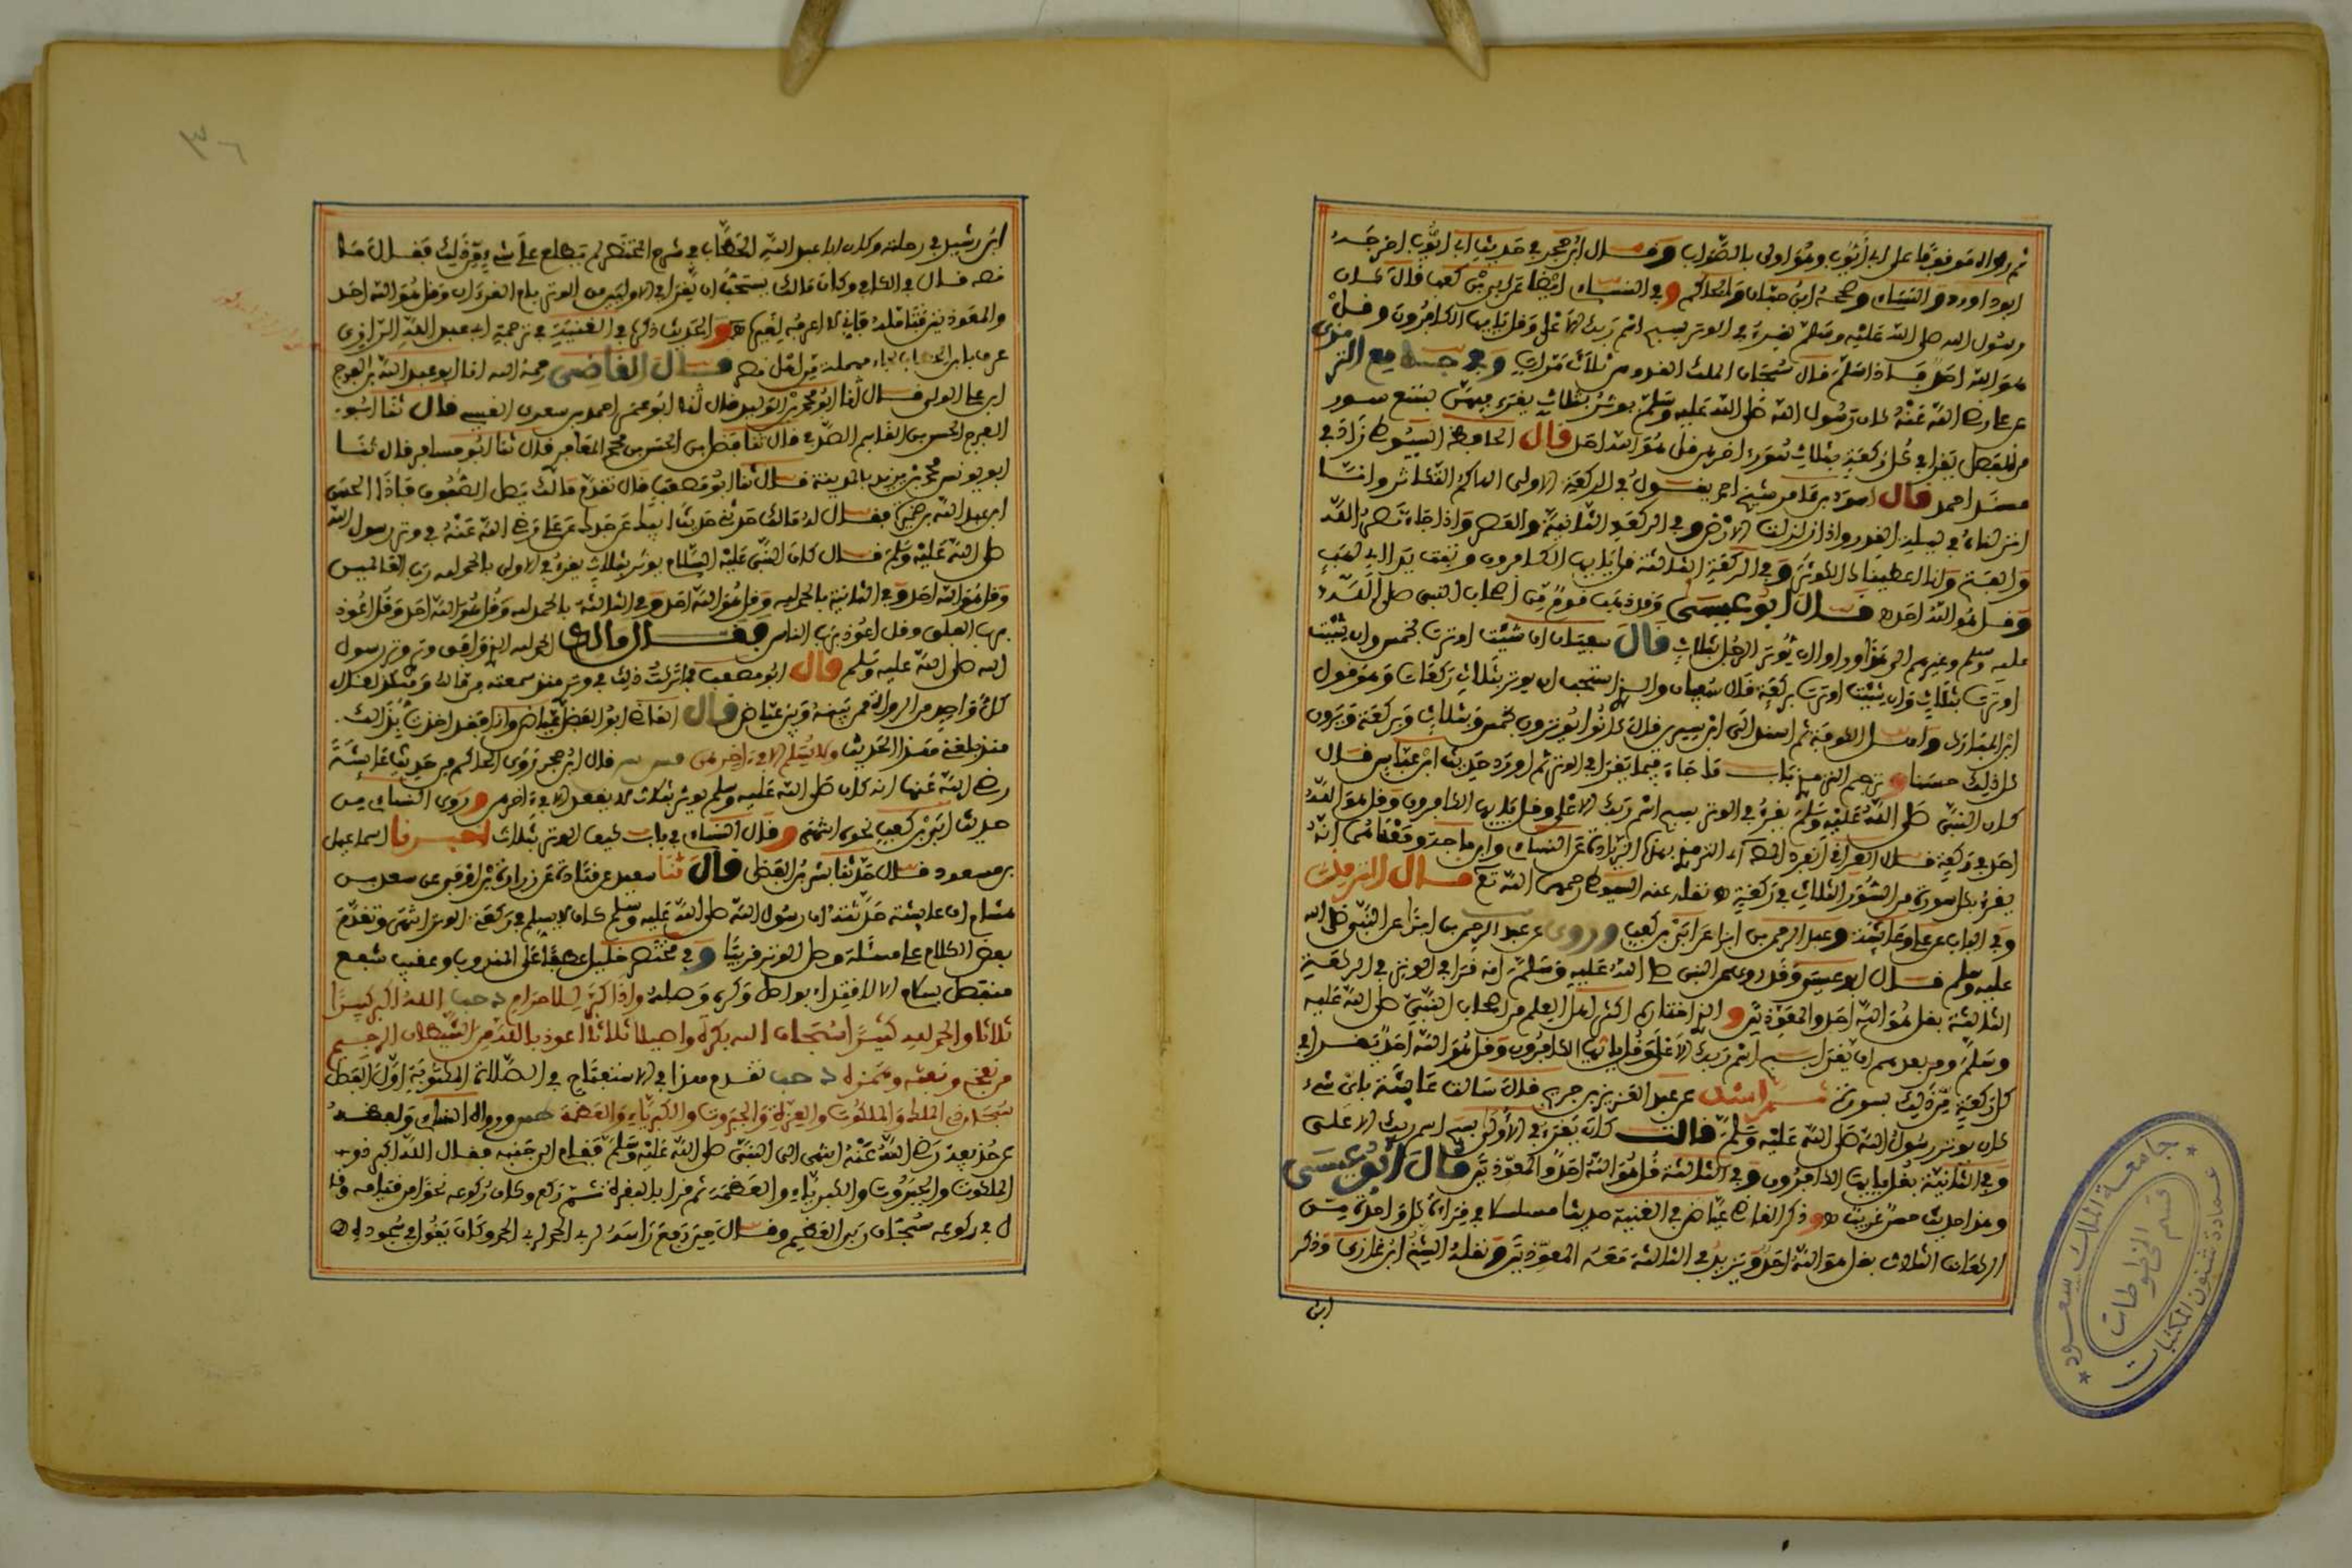 ثم رواه موقوفا على ابي أيوب وهو اولى بالصواب وقال ابن حجر في حديث ابي ايوب اخرجه
ابو داوود والنساءي وصححه ابن حبان والحاكم وفي النساءي ايضا عن ابي بن كعب قال كان
رسول الله صلى الله عليه وسلم يقرء في الوتر بسبح اسم ربك الاعلى وقل يايها الكافرون وقل
هو الله احد فاذا سلم قال سبحان الملك القدوس ثلاث مرات وفي جامع الترمذي
عن علي رضي الله عنه كان رسول الله صلى الله عليه وسلم يوتر بثلاث يقرء فيهن بتسع سور
من المفصل يقرا في كل ركعة بثلاث سور اخرهن قل هو الله احد قال الحافظ السيوطي زاد في
مسند احمد قال اسود بن عامر شيخ احمد يقرأ في الركعة الاولى الهاكم التكاثر وانا
انزلناه في ليلة القدر واذا زلزلت الارض وفي الركعة الثانية والعصر واذا جاء نصر الله
والفتح وانا اعطيناك الكوثر وفي الركعة الثالثة قل يايها الكافرون وتبت يدا ابي لهب
وقل هو الله احد قال ابو عيسى وقد ذهب قوم من اصحاب النبي صلى الله
عليه وسلم وغيرهم الى هذا وراوا ان يوتر الرجل بثلاث قال سفيان ان شئت اوترت بخمس وان شئت
اوترت بثلاث وان شئت اوترت بركعة قال سفيان والذي استحب ان يوتر بثلاث ركعات وهو قول
ابن المبارك واهل الكوفة ثم اسند الى ابن سيرين قال كانوا يوترون بخمس وبثلاث وبركعة ويرون
كل ذلك حسنا وترجم الترمذي باب ما جاء فيما يقرا في الوتر ثم اورد حديث ابن عباس قال
كان النبي صلى الله عليه وسلم يقرء في الوتر بسبح اسم ربك الاعلى وقل يايها الكافرون وقل هو الله
احد في ركعة قال العراقي انفرد الترمذي بهذه الزيادة عن النساءي وابن ماجه ومعناها انه
يقرء بكل سورة من السور الثلاث في ركعة نقله عنه السيوطي رحمهم الله تع قال الترمذي
وفي الباب عن علي وعائشة وعبد الرحمن بن ابزا عن ابي بن كعب وروي عن عبد الرحمن بن ابزا عن النبي صلى الله
عليه وسلم قال ابو عيسى وقد روي عن النبي صلى الله عليه وسلم انه قرا في الوتر في الركعة
الثالثة بقل هو الله احد والمعوذتين والذي اختاره اكثر اهل العلم من اصحاب النبي صلى الله عليه
وسلم ومن بعدهم ان يقرا بسبح اسم ربك الاعلى وقل يايها الكافرون وقل هو الله احد يقرا في
كل ركعة من ذلك بسورة ثم اسند عن عبد العزيز بن جريج قال سالت عائشة باي شيء
كان يوتر رسول الله صلى الله عليه وسلم قالت كان يقرء في الاولى بسبح اسم ربك الاعلى
وفي الثانية بقل يايها الكافرون وفي الثالثة قل هو الله احد والمعوذتين قال ابو عيسى
وهذا حديث حسن غريب وذكر القاضي عياض في الغنية حديثا مسلسلا في قراءة كل واحدة من
الركعات الثلاث بقل هو الله احد ويزيد في الثالثة معه المعوذتين ونقله الشيخ ابن غازي وذكر
ابن
٣٦
ابن رشيد في رحلته وكان ابا عبد الله الحطاب في شرح المختصر لم يطلع على شيء من ذلك فقال ما
نصه قال في الكافي وكان مالك يستحب ان يقرا في الاوليين من الوتر بام القرءان وقل هو الله احد
والمعوذتين قلت فاني لا اعرفه لغيره والحديث ذكره في الغنية في ترجمة ابي عبد الله الرازي
عرف بابن الحطاب بحاء مهملة من اهل مصر قال القاضي رحمه الله انا ابو عبد الله
ابي علي قال نا ابو محمد بن الوليد قال نا ابو عمر احمد بن سعدي القيسي قال ثنا ابو
الفرج الحسن بن القاسم قال ثنا فضل بن الحسن بن محمد قال ثنا ابو مسافر قال ثنا
ابو يونس محمد بن يزيد بالمدينة قال ثنا ابو مصعب قال تقدم مالك يصل الصفوف فاذا الحسن
ابن عبد الله بن فقال له مالك حدثني حديث ابيك عن جدك عن علي رضي الله عنه في وتر رسول الله
صلى الله عليه وسلم قال كان النبي عليه السلام يوتر بثلاث يقرء في الاولى بالحمد لله رب العالمين
وقل هو الله احد وفي الثانية بالحمد لله وقل هو الله احد وفي الثالثة بالحمد لله وقل هو الله احد وقل اعوذ
برب الفلق وقل اعوذ برب الناس فقال مالك الحمد لله الذي وافق وتري وتر رسول
الله صلى الله عليه وسلم قال ابو مصعب فما تركت ذلك في وتر منذ سمعته من مالك وهكذا قال
كل واحد من الرواة ممن بينه وبين عياض قال القاضي ابو الفضل عياض وانا فقد اخذت بذلك
منذ بلغني هذا الحديث ولا يسلم الا في اخرهن قال ابن حجر روى الحاكم من حديث عائشة
رضي الله عنها انه كان صلى الله عليه وسلم يوتر بثلاث لا يقعد الا في اخرهن وروى النساءي من
حديث ابي بن كعب نحوه انتهى وقال النساءي في باب كيف الوتر بثلاث اخبرنا اسماعيل
بن مسعود قال حدثنا بشر بن المفضل قال ثنا سعيد عن قتادة عن زرارة بن اوفى عن سعد بن
هشام ان عائشة حدثته ان رسول الله صلى الله عليه وسلم كان لا يسلم في ركعتي الوتر انتهى وتقدم
بعض الكلام على مسئلة وصل الوتر قريبا وفي مختصر خليل عطفا على المندوب وعقب شفع
منفصل بسلام الا لاقتداء بواصل وكره وصله واذا كبر للاحرام د حب الله اكبر كبيرا
ثلاثا والحمد لله كثيرا سبحان الله بكرة واصيلا ثلاثا اعوذ بالله من الشيطان الرجيم
من نفخه ونفثه وهمزه د حب تقدم هذا في الاستفتاح في الصلاة المكتوبة اول الفصل
سبحان ذي الملك والملكوت والعزة والجبروت والكبرياء والعظمة رواه النساءي ولفظه
عن حذيفة رضي الله عنه انتهى الى النبي صلى الله عليه وسلم فقام الى جنبه فقال الله اكبر ذو
الملكوت والجبروت والكبرياء والعظمة ثم قرا بالبقرة ثم ركع وكان ركوعه نحوا من قيامه وقا
ل في ركوعه سبحان ربي العظيم وقال حين رفع راسه لربي الحمد لربي الحمد وكان يقول في سجوده
جامعة الملك سعود
عمادة شئون المكتبات
قسم المخطوطات